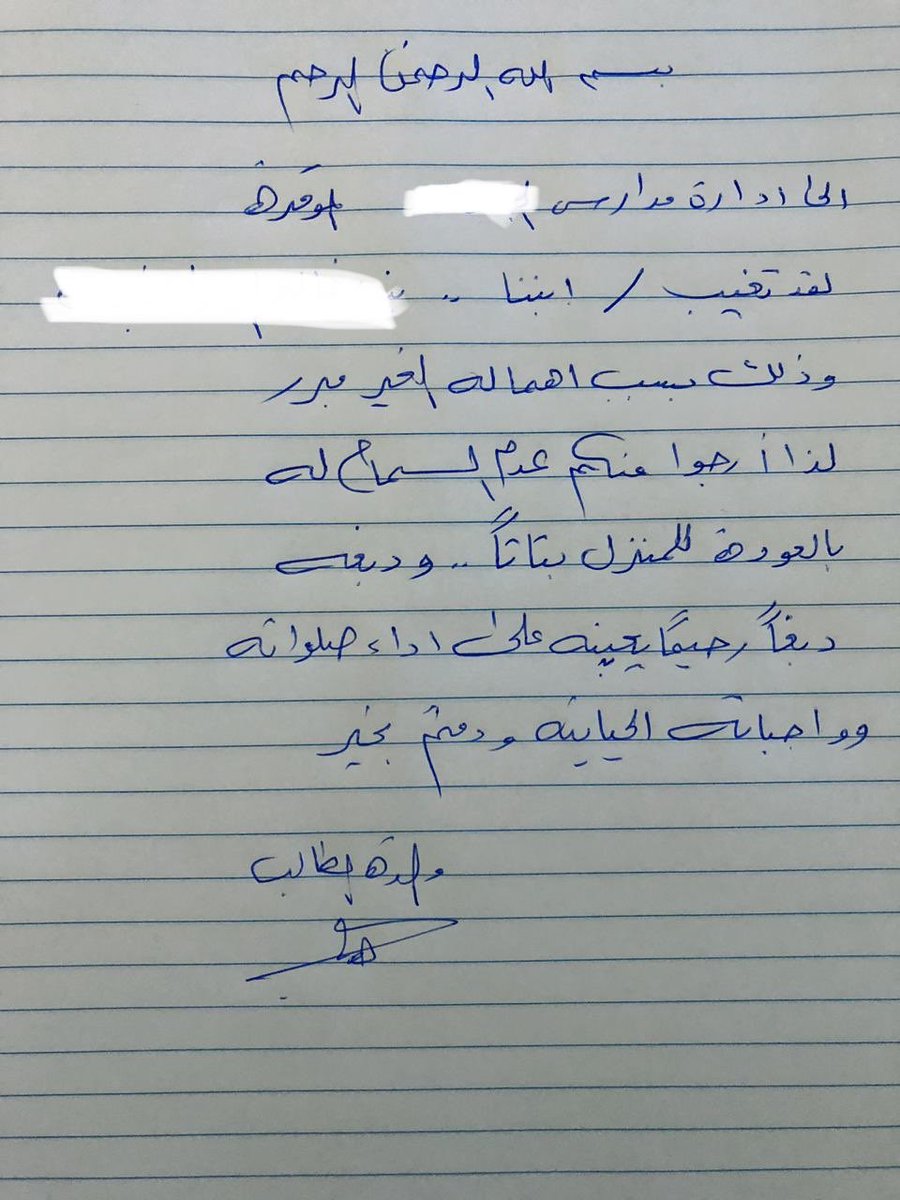 بسم الله الرحمن الرحيم
الى ادارة مدارس الموقرة
لقد تغيب / ابننا ..
وذلك بسبب اهماله الغير مبرر
لذا أرجوا منكم عدم السماح له
بالعودة للمنزل بتاتاً .. ودبغه
دبغاً رحيماً يعينه على اداء صلواته
وواجباته الحياتية ودمتم بخير
والدة الطالب